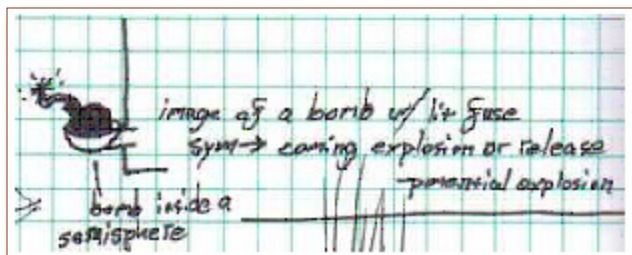 image of a bomb w/ lit fuse
sym → coming explosion or release
explosion
bomb inside a
semisphere